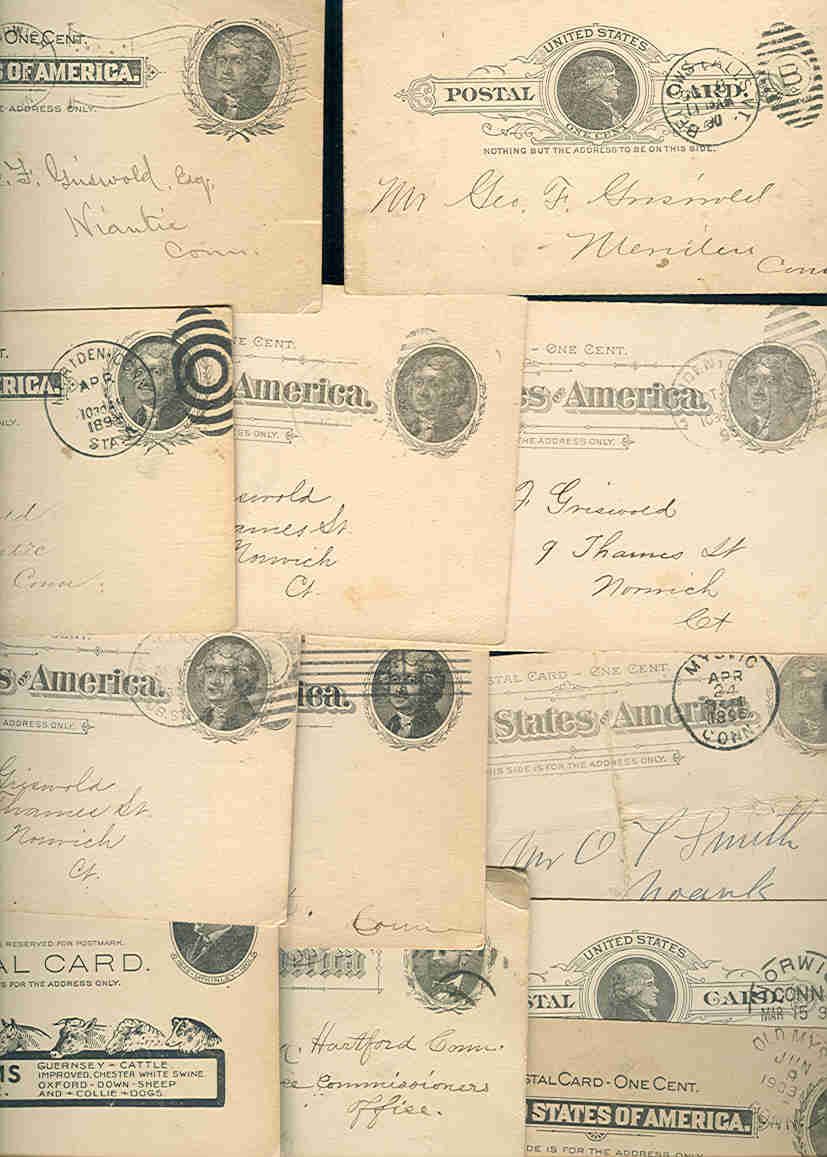 ONE CENT.
S OF AMERICA.
E ADDRESS ONLY.
F. Griswold, Esq.
Niantic
Conn.
UNITED STATES
POSTAL CARD.
ONE CENT
NOTHING BUT THE ADDRESS TO BE ON THIS SIDE.
BELLOWS FALLS, VT.
B
Mr Geo. F. Griswold
Meriden
Conn
T.
RICA.
NLY.
APR
1030 AM
189
STA.
Conn.
E CENT.
America.
SS ONLY.
swold
ames St.
Norwich
Ct.
- ONE CENT.
s OF America.
THE ADDRESS ONLY.
F Griswold
9 Thames St
Norwich
Ct
CENT.
s OF America.
ADDRESS ONLY.
Griswold
Thames St.
Norwich
Ct.
ica.
Conn
STAL CARD - ONE CENT.
States OF America.
HIS SIDE IS FOR THE ADDRESS ONLY.
MYSTIC
APR
24
1896
CONN.
Mr O T Smith
Noank
RESERVED FOR POSTMARK.
AL CARD.
S FOR THE ADDRESS ONLY.
1843-McKINLEY-1901
MS
GUERNSEY - CATTLE
IMPROVED, CHESTER WHITE SWINE.
OXFORD - DOWN - SHEEP
AND - COLLIE - DOGS.
America
Hartford Conn.
ce Commissioners
Office.
UNITED STATES
STAL CARD.
NORWICH
CONN
MAR 15 9
OLD MYS
JUN
9
1903
CONN.
STAL CARD - ONE CENT.
STATES OF AMERICA.
DE IS FOR THE ADDRESS ONLY.